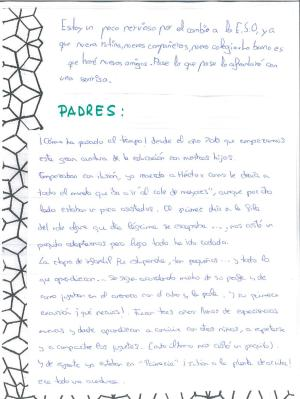 Estoy un poco nervioso por el cambio a la E.S.O, ya
que nueva rutina, nuevos compañeros, nuevo colegio. Lo bueno es
que haré nuevos amigos. Pase lo que pase lo afrontaré con
una sonrisa.
PADRES:
¡Cómo ha pasado el tiempo! desde el año 2010 que empezamos
esta gran aventura de la educación con nuestros hijos.
Empezaban con ilusión, yo recuerdo a Héctor como le decía a
todo el mundo que iba a ir "al cole de mayores", aunque por otro
lado estaban un poco asustados. El primer día en la fila
del cole alguna que otra lágrima se escapaba..., nos costó un
poquito adaptarnos pero luego todo ha ido rodado.
La etapa de infantil fue estupenda, tan pequeños... y todo lo
que aprendieron... Se siguen acordando mucho de su profe y, de
como jugaban en el arenero con el cubo y la pala. Y su primera
excursión ¡qué nervios!. Fueron tres años llenos de experiencias
nuevas y donde aprendieron a convivir con otros niños, a respetarse
y a compartir los juguetes. (esto último nos costó un poquito).
Y de repente ya estaban en "Primaria" ¡subían a la planta de arriba!
era toda una aventura.